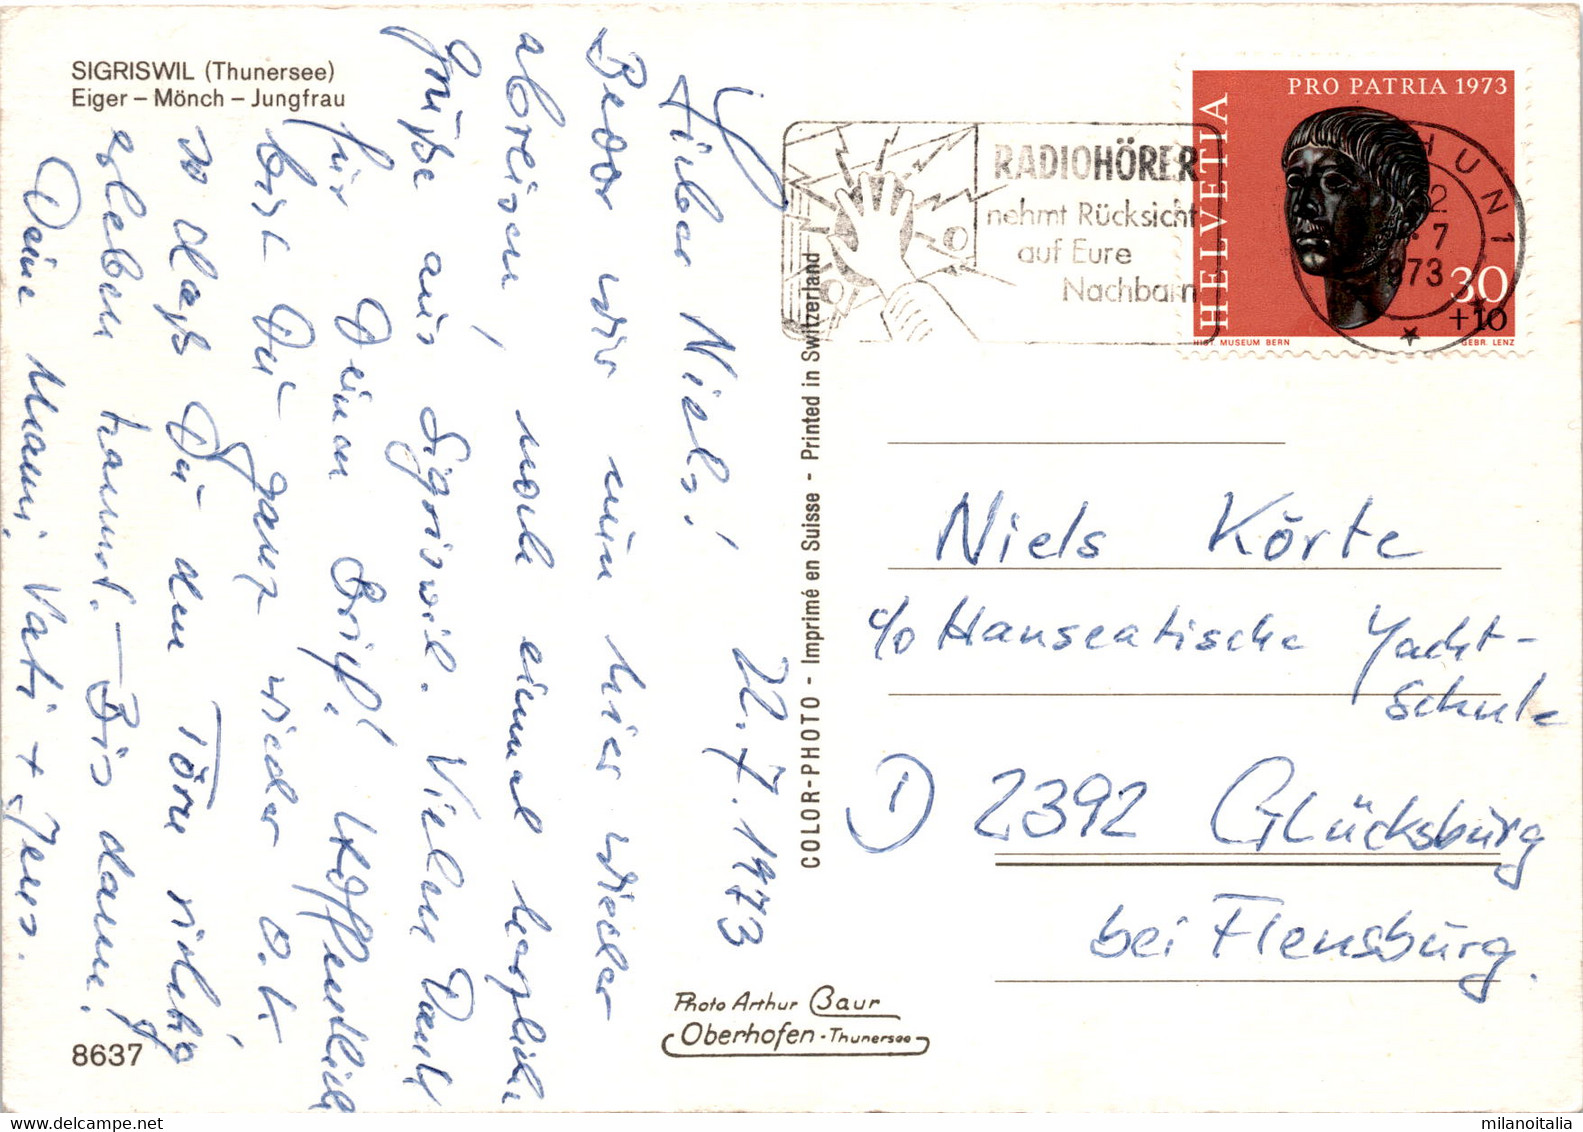 SIGRISWIL (Thunersee)
Eiger – Mönch – Jungfrau
22.7.1973
Lieber Niels!
Bevor wir nun hier wieder
abreisen, noch einmal herzliche
Grüße aus Sigriswil. Vielen Dank
für Deinen Brief! Hoffentlich
bist Du ganz wieder o.k.,
so daß Du den Törn richtig
erleben kannst. – Bis dann!
Deine Mami, Vati + Jens.
8637
COLOR-PHOTO - Imprimé en Suisse - Printed in Switzerland
Photo Arthur Baur
Oberhofen - Thunersee
RADIOHÖRER
nehmt Rücksicht
auf Eure
Nachbarn
PRO PATRIA 1973
HELVETIA
30
+10
HIST. MUSEUM BERN
GEBR. LENZ
THUN 1
7
1973
Niels Körte
c/o Hanseatische Yacht-
schule
D 2392 Glücksburg
bei Flensburg.
milanoitalia